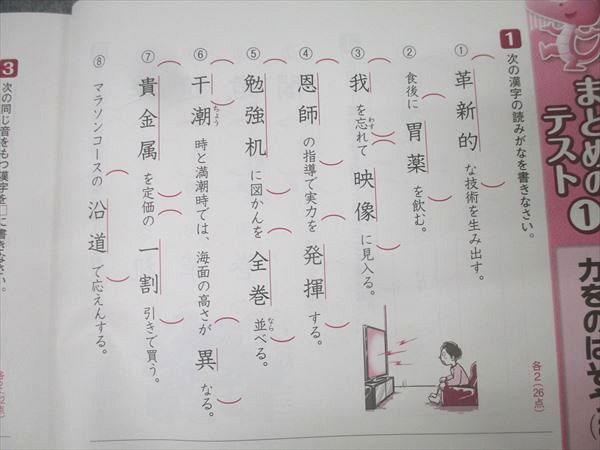 まとめの
テスト
1
力をのばそう
1 次の漢字の読みがなを書きなさい。
各2(26点)
① 革新的な技術を生み出す。
② 食後に胃薬を飲む。
③ 我を忘れて映像に見入る。
わす
④ 恩師の指導で実力を発揮する。
⑤ 勉強机に図かんを全巻並べる。
なら
⑥ 干潮時と満潮時では、海面の高さが異なる。
ちょう
⑦ 貴金属を定価の一割引きで買う。
⑧ マラソンコースの沿道で応えんする。
3 次の同じ音をもつ漢字を□に書きなさい。